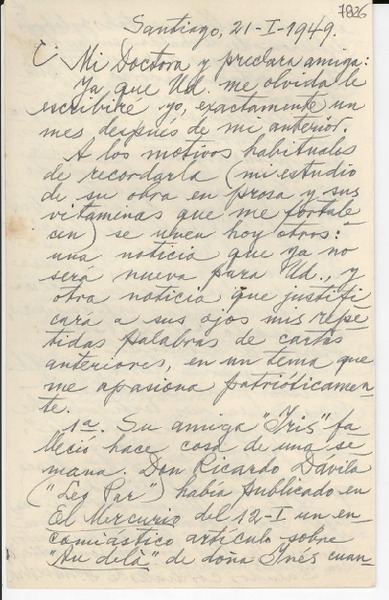 7826
Santiago, 21-I-1949.
Mi Doctora y preclara amiga:
Ya que Ud. me olvida le
escribire yo, exactamente un
mes después de mi anterior.
A los motivos habituales
de recordarla (mi estudio
de su obra en prosa y sus
vitaminas que me fortale
cen) se unen hoy otros:
una noticia que ya no
será nueva para Ud., y
otra noticia que justifi
cará a sus ojos mis repe
tidas palabras de cartas
anteriores, en un tema que
me apasiona patrióticamen
te.
1a. Su amiga "Iris" fa
lleció hace cosa de una se
mana. Don Ricardo Dávila
("Leg Par") había publicado en
El Mercurio del 12-I un en
comiástico artículo sobre
"Au delà" de doña Inés cuan